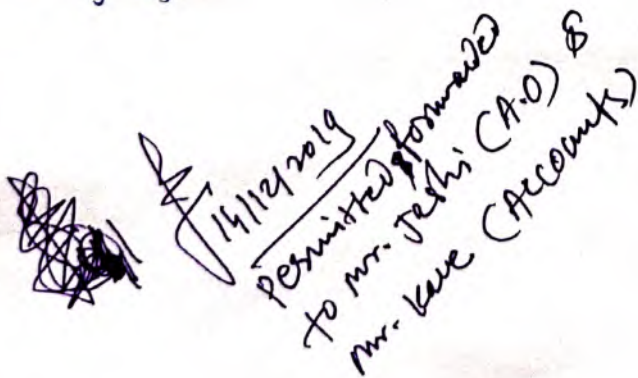 14/12/2019
Permitted & forwarded
to mr. Joshi (A.O) &
mr. Kale (Accounts)